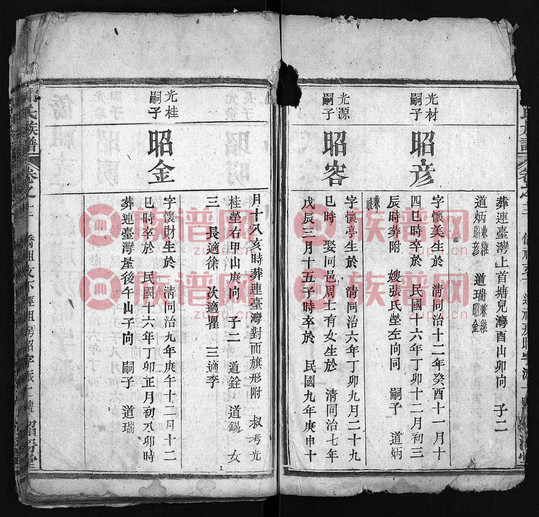 葬連臺灣上首塘兒灣酉山卯向 子二
道炳兼祧昭彥 道瑞兼祧昭金
光材
嗣子
昭彥
字懷美生於 清同治十二年癸酉十一月十
四巳時卒於 民國十六年丁卯十二月初三
辰時葬附 嫂張氏塋左向同 嗣子 道炳
兼祧
光源
嗣子
昭容
字懷亭生於 清同治六年丁卯九月二十九
巳時 娶同邑周士有女生於 清同治七年
戊辰三月十五子時卒於 民國九年庚申十
月十八亥時葬連臺灣對面旗形附 叔考光
桂塋右甲山庚向 子二 道銓 道 女
三 長適徐 次適瞿 三適李
光桂
嗣子
昭金
字懷財生於 清同治九年庚午十二月十二
巳時卒於 民國十六年丁卯正月初又卯時
葬連臺灣屋後午山子向 嗣子 道瑞
氏族譜
卷之二
族譜网